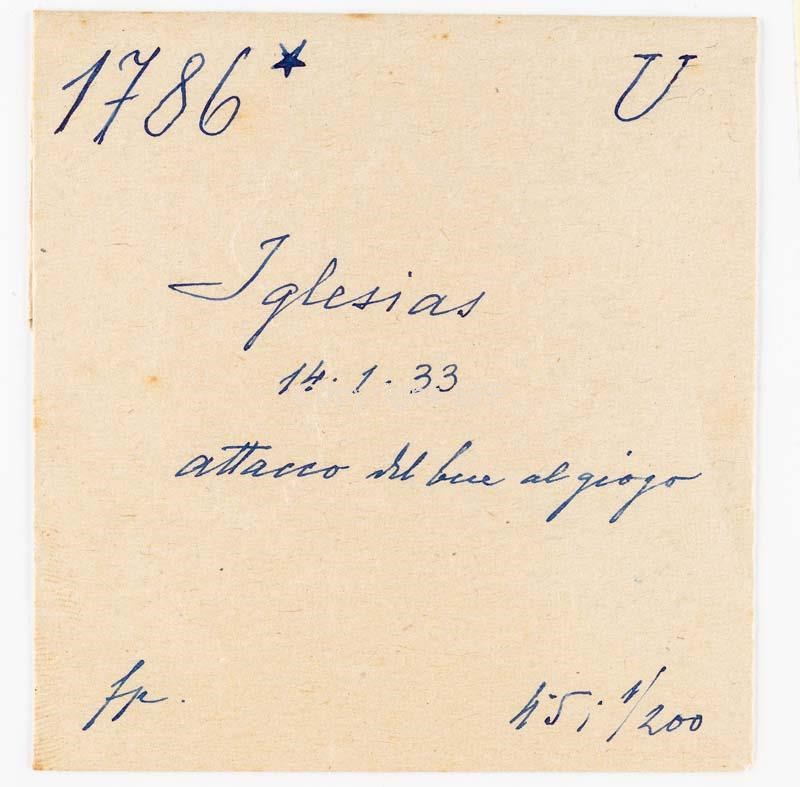 1786* U
Iglesias
14.1.33
attacco del bue al giogo
fp. 4·5; 1/200